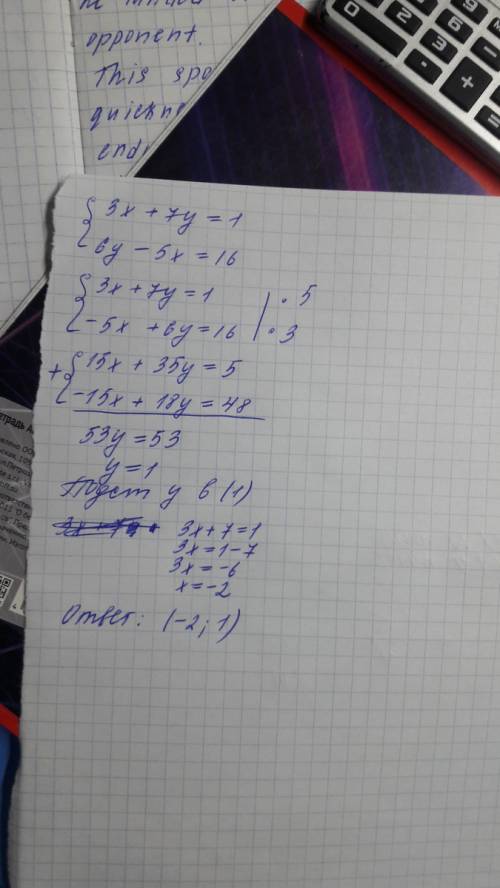 opponent.
This spo
quickn
end
3x + 7y = 1
6y - 5x = 16
3x + 7y = 1 | · 5
-5x + 6y = 16 | · 3
+ 15x + 35y = 5
-15x + 18y = 48
53y = 53
y = 1
Подст y в (1)
3x + 7 = 1
3x = 1 - 7
3x = -6
x = -2
Ответ: (-2; 1)